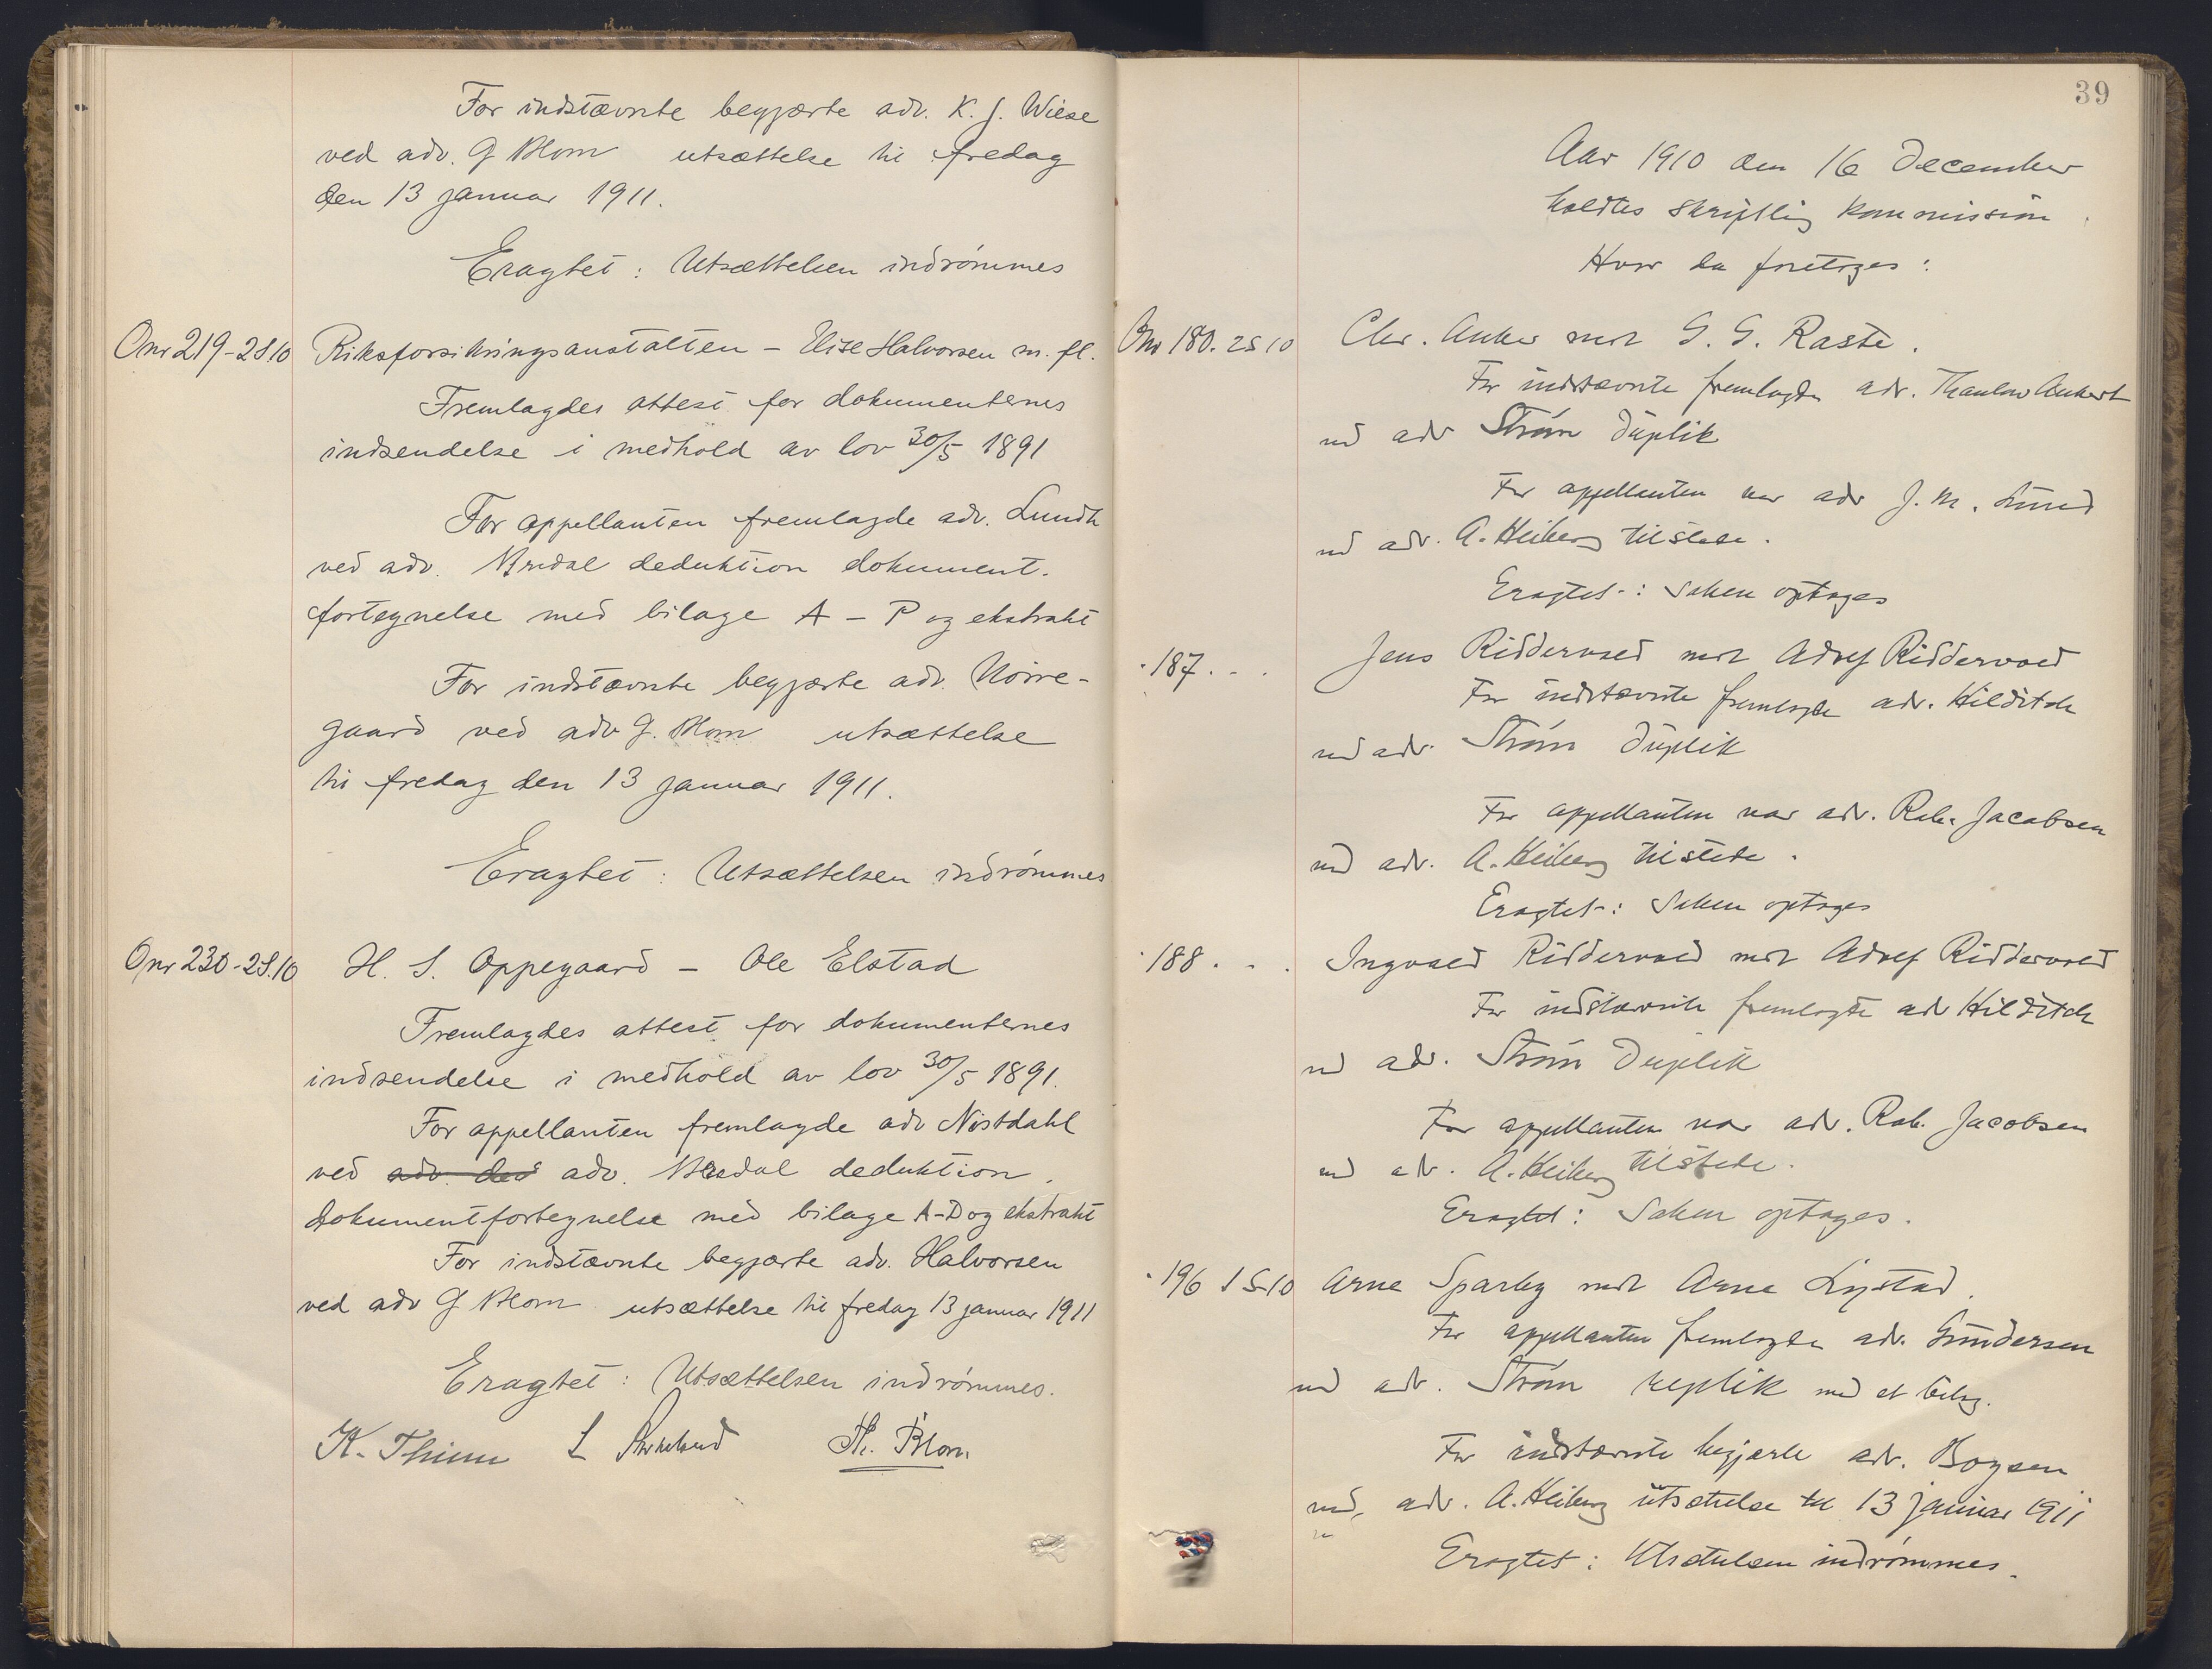 For indstævnte begjærte adv. K. J. Wiese
ved adv. G Blom utsættelse til fredag
den 13 januar 1911.
Eragtet: Utsættelsen indrömmes
Onr 219-2S.10 Riksforsikringsanstalten - Elise Halvorsen m. fl.
Fremlagdes attest for dokumenternes
indsendelse i medhold av lov 30/5 1891
For appellanten fremlagde adv. Lundh
ved adv. Bredal deduktion dokument-
fortegnelse med bilage A - P og ekstrakt
For indstævnte begjærte adv. Nörre-
gaard ved adv G. Blom utsættelse
til fredag den 13 januar 1911.
Eragtet: Utsættelsen indrömmes
Onr 230-2S.10 H. S. Oppegaard - Ole Elstad
Fremlagdes attest for dokumenternes
indsendelse i medhold av lov 30/5 1891.
For appellanten fremlagde adv Nöstdahl
ved adv. ded adv. Bredal deduktion,
dokumentfortegnelse med bilage A-D og ekstrakt
For indstævnte begjærte adv. Halvorsen
ved adv G Blom utsættelse til fredag 13 januar 1911
Eragtet: Utsættelsen indrömmes.
K. Thinn L Th. Blom
39
Aar 1910 den 16 December
holdtes skriftlig kommission
Hvor da foretoges:
Onr 180. 2S10 Chr. Anker mot G. G. Raste.
For indstævnte fremlagde adv. Thaulow Ankert
ved adv Ström Duplik
For appellanten var adv J. M. Lund
ved adv. A. Heiberg tilstede.
Eragtet: Saken optages
" 187. - . Jens Riddervold mot Adolf Riddervold
For indstævnte fremlagde adv. Hilditch
ved adv. Ström Duplik
For appellanten var adv. Rob. Jacobsen
ved adv. A. Heiberg tilstede.
Eragtet: Saken optages
" 188. - . Ingvald Riddervold mot Adolf Riddervold
For indstævnte fremlagde adv Hilditch
ved adv. Ström Duplik
For appellanten var adv. Rob. Jacobsen
ved adv. A. Heiberg tilstede.
Eragtet: Saken optages.
" 196 1S10 Arne Sparby mot Arne Lystad.
For appellanten fremlagde adv. Gundersen
ved adv. Ström replik med et bilag.
For indstævnte begjærte adv. Boysen
ved adv. A. Heiberg utsættelse til 13 januar 1911
Eragtet: Utsættelsen indrömmes.